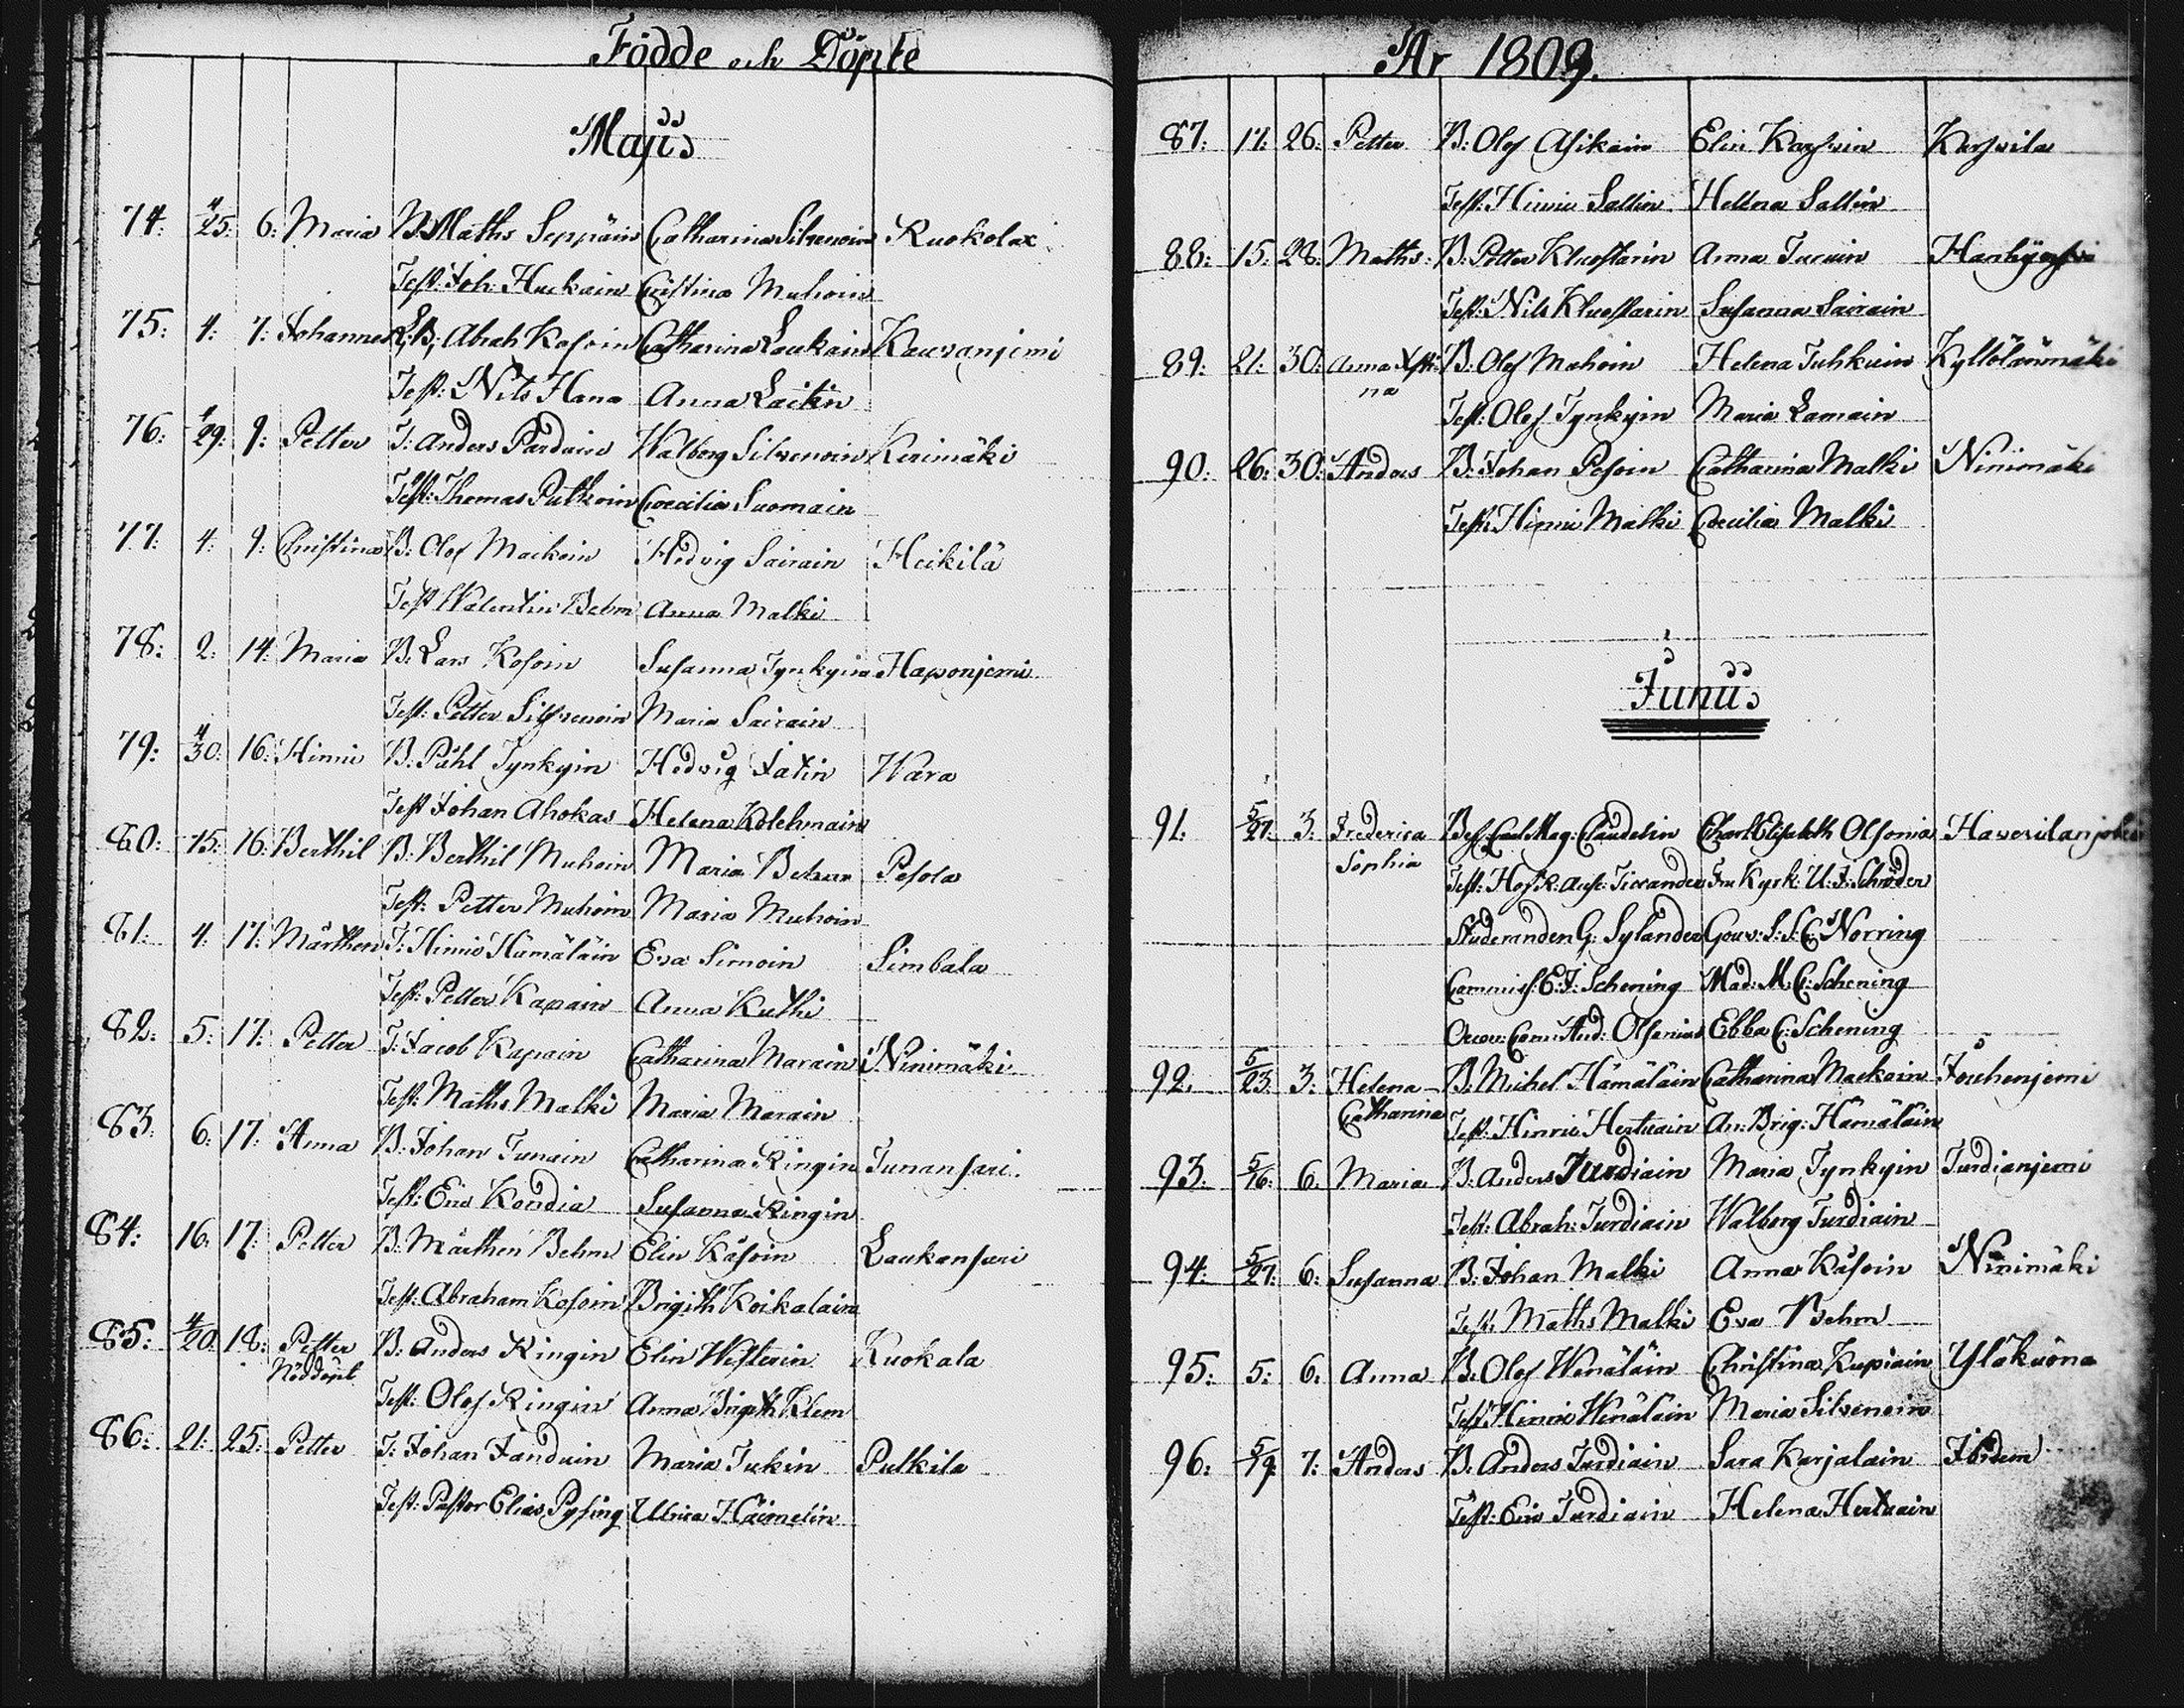 Födde och Döpte
Majus
74: 4/25: 6: Maria B: Maths Seppäin Catharina Silvenoin Ruokolax
Test: Joh: Huckain Cristina Muhoin
75: 4: 7: Johannes L:B: Abrah Kosoin Catharina Laukain Kauranjemi
Test: Nils Hana Anna Laitin
76: 4/29: 9: Petter T: Anders Parduin Walborg Silvenoin Kerimäki
Test: Thomas Pulkoin Coecilia Suomain
77: 4: 9: Christina B: Olof Mackoin Hedvig Sairain Heikilä
Test Walentin Behm Anna Malki
78: 2: 14: Maria B: Lars Kosoin Susanna Tynkyin Haponjemi
Test: Petter Silfvenoin Maria Sairain
79: 4/30: 16: Hinric B: Påhl Tynkyin Hedvig Jatin Wara
Test Johan Ahokas Helena Kolehmain
80: 15: 16: Berthil B: Berthil Muhoin Maria Behm Pesola
Test: Petter Muhoin Maria Muhoin
81: 4: 17: Mårthen T: Hinric Hämäläin Eva Simoin Simbala
Test: Petter Kapain Anna Kuthi
82: 5: 17: Petter T: Jacob Kapain Catharina Marain Ninimäki
Test: Maths Malki Maria Marain
83: 6: 17: Anna B: Johan Tunain Catharina Ringin Tunansari.
Test: Eric Kondia Susanna Ringin
84: 16: 17: Petter B: Mårthen Behm Elin Käsoin Laukansari
Test: Abraham Kosoin Brigith Koikalain
85: 4/20: 18: Petter B: Anders Ringin Elin Westerin Ruokala
Nöddöpt
Test: Olof Ringin Anna Brigith Klem
86: 21: 25: Petter T: Johan Janduin Maria Tukin Pulkila
Test: Pastor Elias Pysing Ulrica Haimelin
År 1809.
87: 17: 26: Petter B: Olof Asikain Elin Karhuin
Test: Hinric Sallin Hellena Sallin
88: 15: 28: Maths: B: Petter Kluostarin Anna Turuin
Test: Nils Kluostarin Susanna Sairain
89: 21: 30: Anna Xsti- B: Olof Mahoin Helena Tuhkuin Kyllölänmäki
na
Test: Olof Tynkyin Maria Lamain
90: 26: 30: Anders B: Johan Pesoin Catharina Malki Ninimäki
Test: Hinric Malki Coecilia Malki
Junius
91: 5/27: 3: Frederica Bes: Carl Mag: Claudelin Charl: Elisabeth Olsonia
Sophia
Test: Hof R: Ause: Ticcander Fru Kyrk: U: F: Schröder
Studeranden G: Sylander Gouv: S: S: C: Norring
Commiss: E: J: Schening Mad: M: C: Schening
And: Olsenius Ebba C: Schening
92: 5/23: 3: Helena B: Michel Hämäläin Catharina Mackoin Jouhenjemi
Catharina
Test: Hinric Hertuain An: Brig: Hämäläin
93: 5/16: 6: Maria B: Anders Turdiain Maria Tynkyin Turdianjemi
Test: Abrah: Turdiain Walborg Turdiain
94: 5/27: 6: Susanna B: Johan Malki Anna Käsoin Ninimäki
Test: Maths Malki Eva Behm
95: 5: 6: Anna B: Olof Wenäläin Christina Kupiain Yläkuona
Test: Hinric Wenäläin Maria Silvenoin
96: 5/19: 7: Anders B: Anders Turdiain Sara Karjalain
Test: Eric Turdiain Helena Hertuain